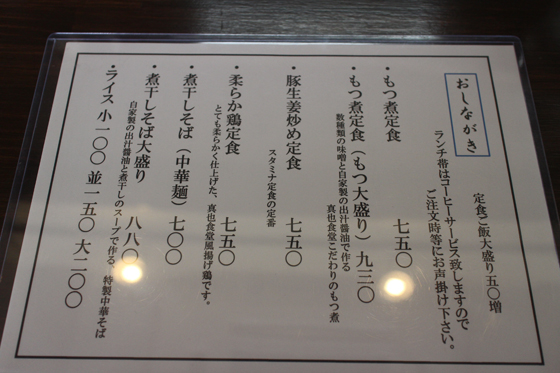 おしながき
定食ご飯大盛り五〇増
ランチ帯はコーヒーサービス致しますので
ご注文時等にお声掛け下さい。
・もつ煮定食 七五〇
・もつ煮定食(もつ大盛り)九三〇
数種類の味噌と自家製の出汁醤油で作る
真也食堂こだわりのもつ煮
・豚生姜炒め定食 七五〇
スタミナ定食の定番
・柔らか鶏定食 七五〇
とても柔らかく仕上げた、真也食堂風揚げ鶏です。
・煮干しそば(中華麺)七〇〇
・煮干しそば大盛り 八八〇
自家製の出汁醤油と煮干しのスープで作る、特製中華そば
・ライス 小一〇〇 並一五〇 大二〇〇